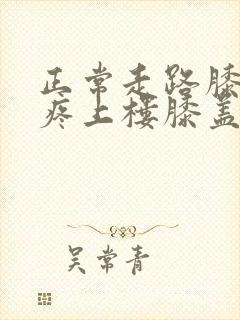 正常走路膝
疼上楼膝盖
吴常青